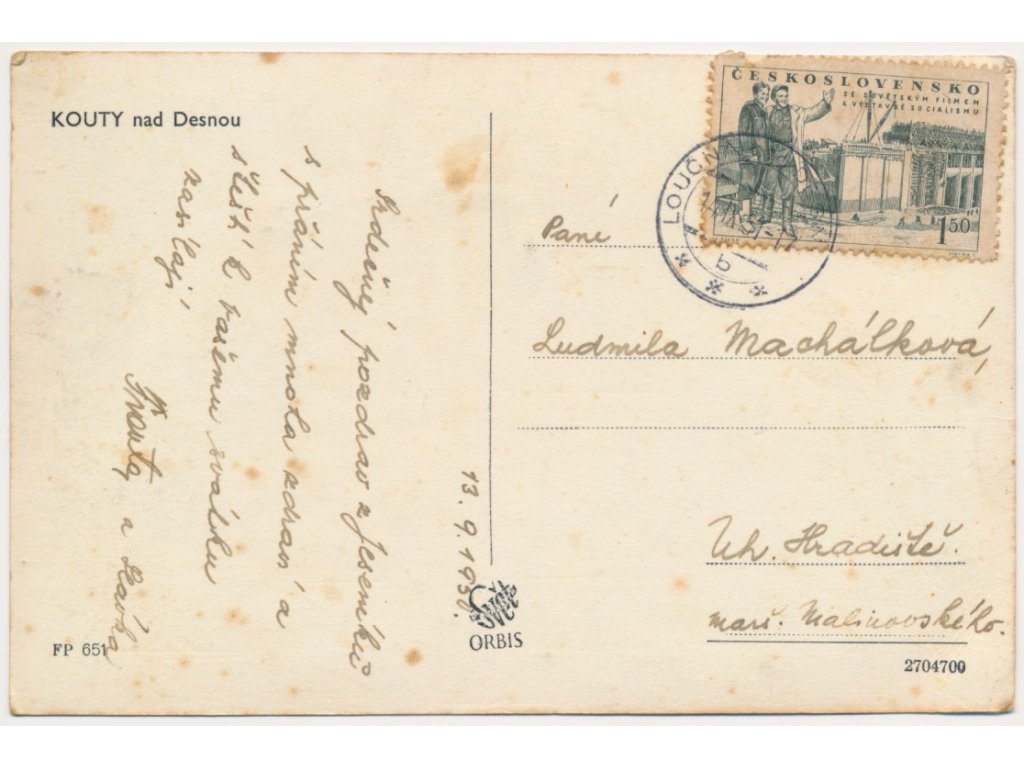 KOUTY nad Desnou
Srdečný pozdrav z Jeseníků
s přáním mnoha zdraví a
štěstí k vašému svátku
zasílají
Franta a Slávka
13. 9. 195
FP 651
ORBIS
ČESKOSLOVENSKO
SE SOVĚTSKÝM FILMEM
K VÝSTAVBĚ SOCIALISMU
1,50
LOUČN
b
Paní
Ludmila Machálková,
Uh. Hradiště.
marš. Malinovského.
2704700